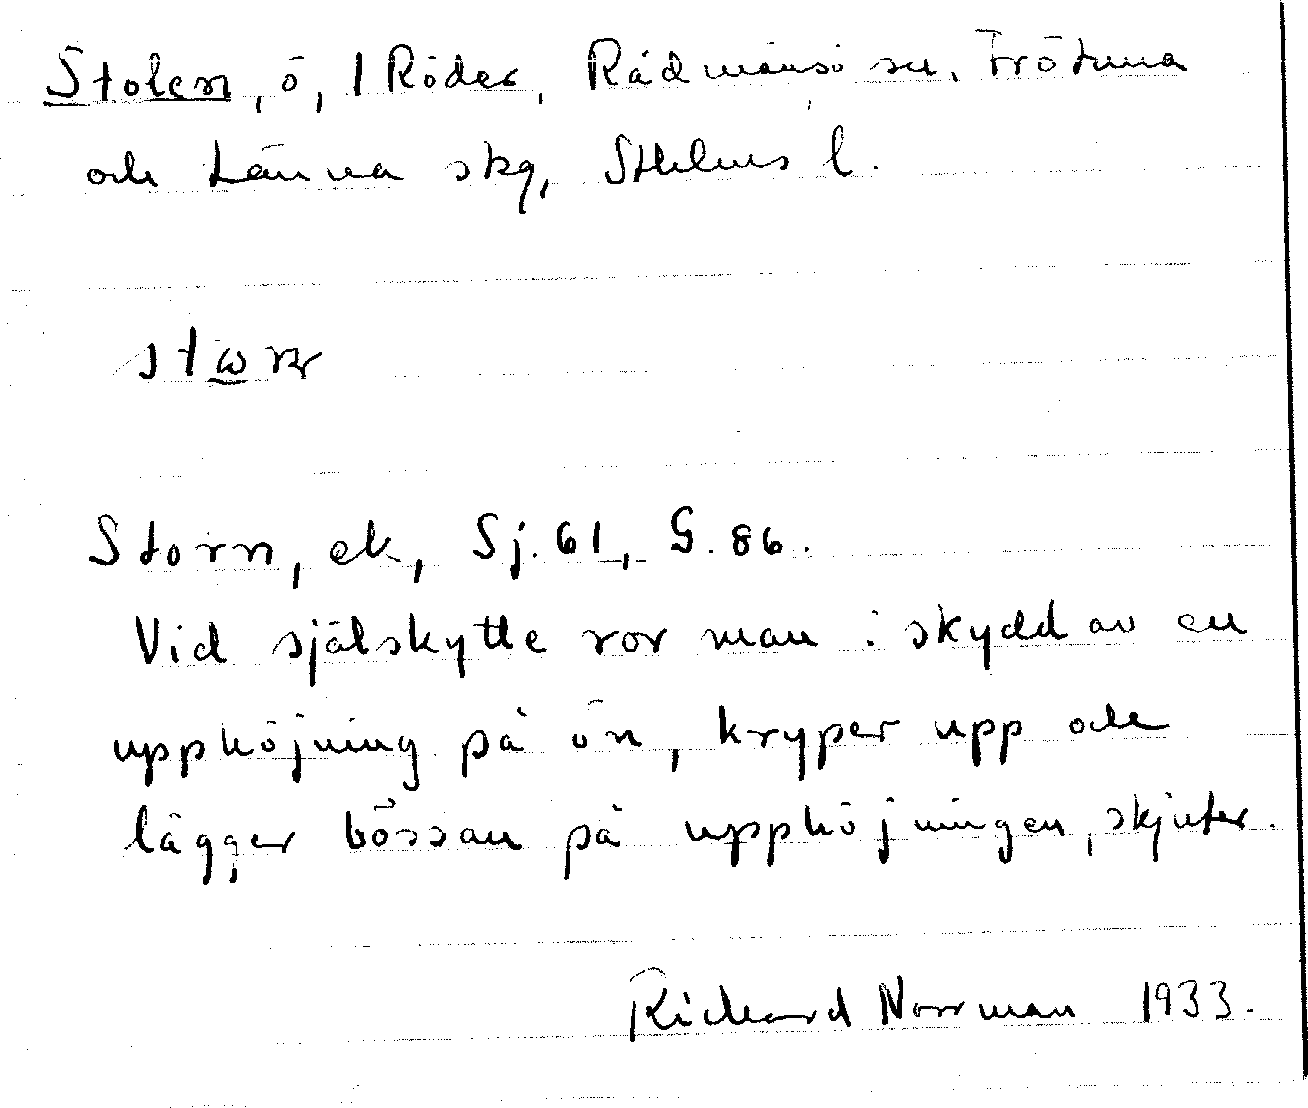 Stolen, ö, I Röder, Rådmansö sn. Frötuna
och Länna skg, Sthlms l.
Storn, ek, Sj. 61, G. 86.
Vid själskytte ror man i skydd av en
upphöjning på ön, kryper upp och
lägger bössan på upphöjningen, skjuter.
Richard Norrman 1933.